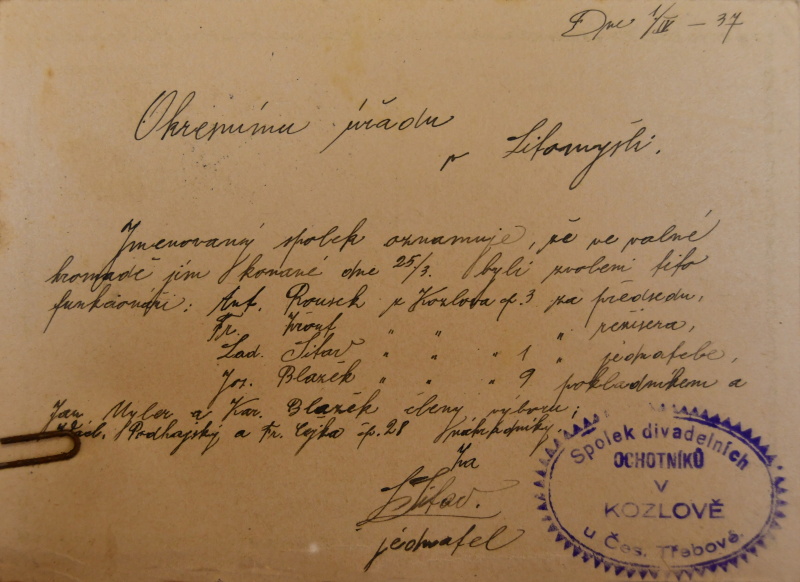 Dne 1/IV – 37
Okresnímu úřadu
v Litomyšli.
Jmenovaný spolek oznamuje, že ve valné
hromadě jím konané dne 25/3. byli zvoleni tito
funkcionáři: Ant. Rousek z Kozlova čp. 3 za předsedu,
Fr. " " " režisera,
Lad. " " " 1 " jednatele,
Jos. Blažek " " " 9 pokladníkem a
Jan Myler a Kar. Blažek členy výboru;
Podhajský a Fr. Cejka čp. 28 náhradníky.
Za
jednatel
Spolek divadelních
OCHOTNÍKŮ
V
KOZLOVĚ
u Čes. Třebové.